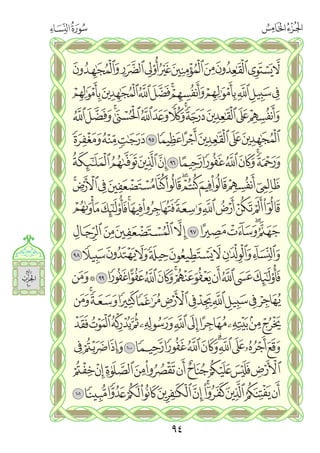 الجُزْءُ الخَامِسُ سُورَةُ النِّسَاءِ
لَّا يَسْتَوِي الْقَاعِدُونَ مِنَ الْمُؤْمِنِينَ غَيْرُ أُولِي الضَّرَرِ وَالْمُجَاهِدُونَ
فِي سَبِيلِ اللَّهِ بِأَمْوَالِهِمْ وَأَنفُسِهِمْ فَضَّلَ اللَّهُ الْمُجَاهِدِينَ بِأَمْوَالِهِمْ
وَأَنفُسِهِمْ عَلَى الْقَاعِدِينَ دَرَجَةً وَكُلًّا وَعَدَ اللَّهُ الْحُسْنَىٰ وَفَضَّلَ اللَّهُ
الْمُجَاهِدِينَ عَلَى الْقَاعِدِينَ أَجْرًا عَظِيمًا ٩٥ دَرَجَاتٍ مِّنْهُ وَمَغْفِرَةً
وَرَحْمَةً وَكَانَ اللَّهُ غَفُورًا رَّحِيمًا ٩٦ إِنَّ الَّذِينَ تَوَفَّاهُمُ الْمَلَائِكَةُ
ظَالِمِي أَنفُسِهِمْ قَالُوا فِيمَ كُنتُمْ قَالُوا كُنَّا مُسْتَضْعَفِينَ فِي الْأَرْضِ
قَالُوا أَلَمْ تَكُنْ أَرْضُ اللَّهِ وَاسِعَةً فَتُهَاجِرُوا فِيهَا فَأُولَٰئِكَ مَأْوَاهُمْ
جَهَنَّمُ وَسَاءَتْ مَصِيرًا ٩٧ إِلَّا الْمُسْتَضْعَفِينَ مِنَ الرِّجَالِ
وَالنِّسَاءِ وَالْوِلْدَانِ لَا يَسْتَطِيعُونَ حِيلَةً وَلَا يَهْتَدُونَ سَبِيلًا ٩٨
فَأُولَٰئِكَ عَسَى اللَّهُ أَن يَعْفُوَ عَنْهُمْ وَكَانَ اللَّهُ عَفُوًّا غَفُورًا ٩٩ ۞ وَمَن
يُهَاجِرْ فِي سَبِيلِ اللَّهِ يَجِدْ فِي الْأَرْضِ مُرَاغَمًا كَثِيرًا وَسَعَةً وَمَن
يَخْرُجْ مِن بَيْتِهِ مُهَاجِرًا إِلَى اللَّهِ وَرَسُولِهِ ثُمَّ يُدْرِكْهُ الْمَوْتُ فَقَدْ
وَقَعَ أَجْرُهُ عَلَى اللَّهِ وَكَانَ اللَّهُ غَفُورًا رَّحِيمًا ١٠٠ وَإِذَا ضَرَبْتُمْ فِي
الْأَرْضِ فَلَيْسَ عَلَيْكُمْ جُنَاحٌ أَن تَقْصُرُوا مِنَ الصَّلَاةِ إِنْ خِفْتُمْ
أَن يَفْتِنَكُمُ الَّذِينَ كَفَرُوا إِنَّ الْكَافِرِينَ كَانُوا لَكُمْ عَدُوًّا مُّبِينًا ١٠١
٩٤